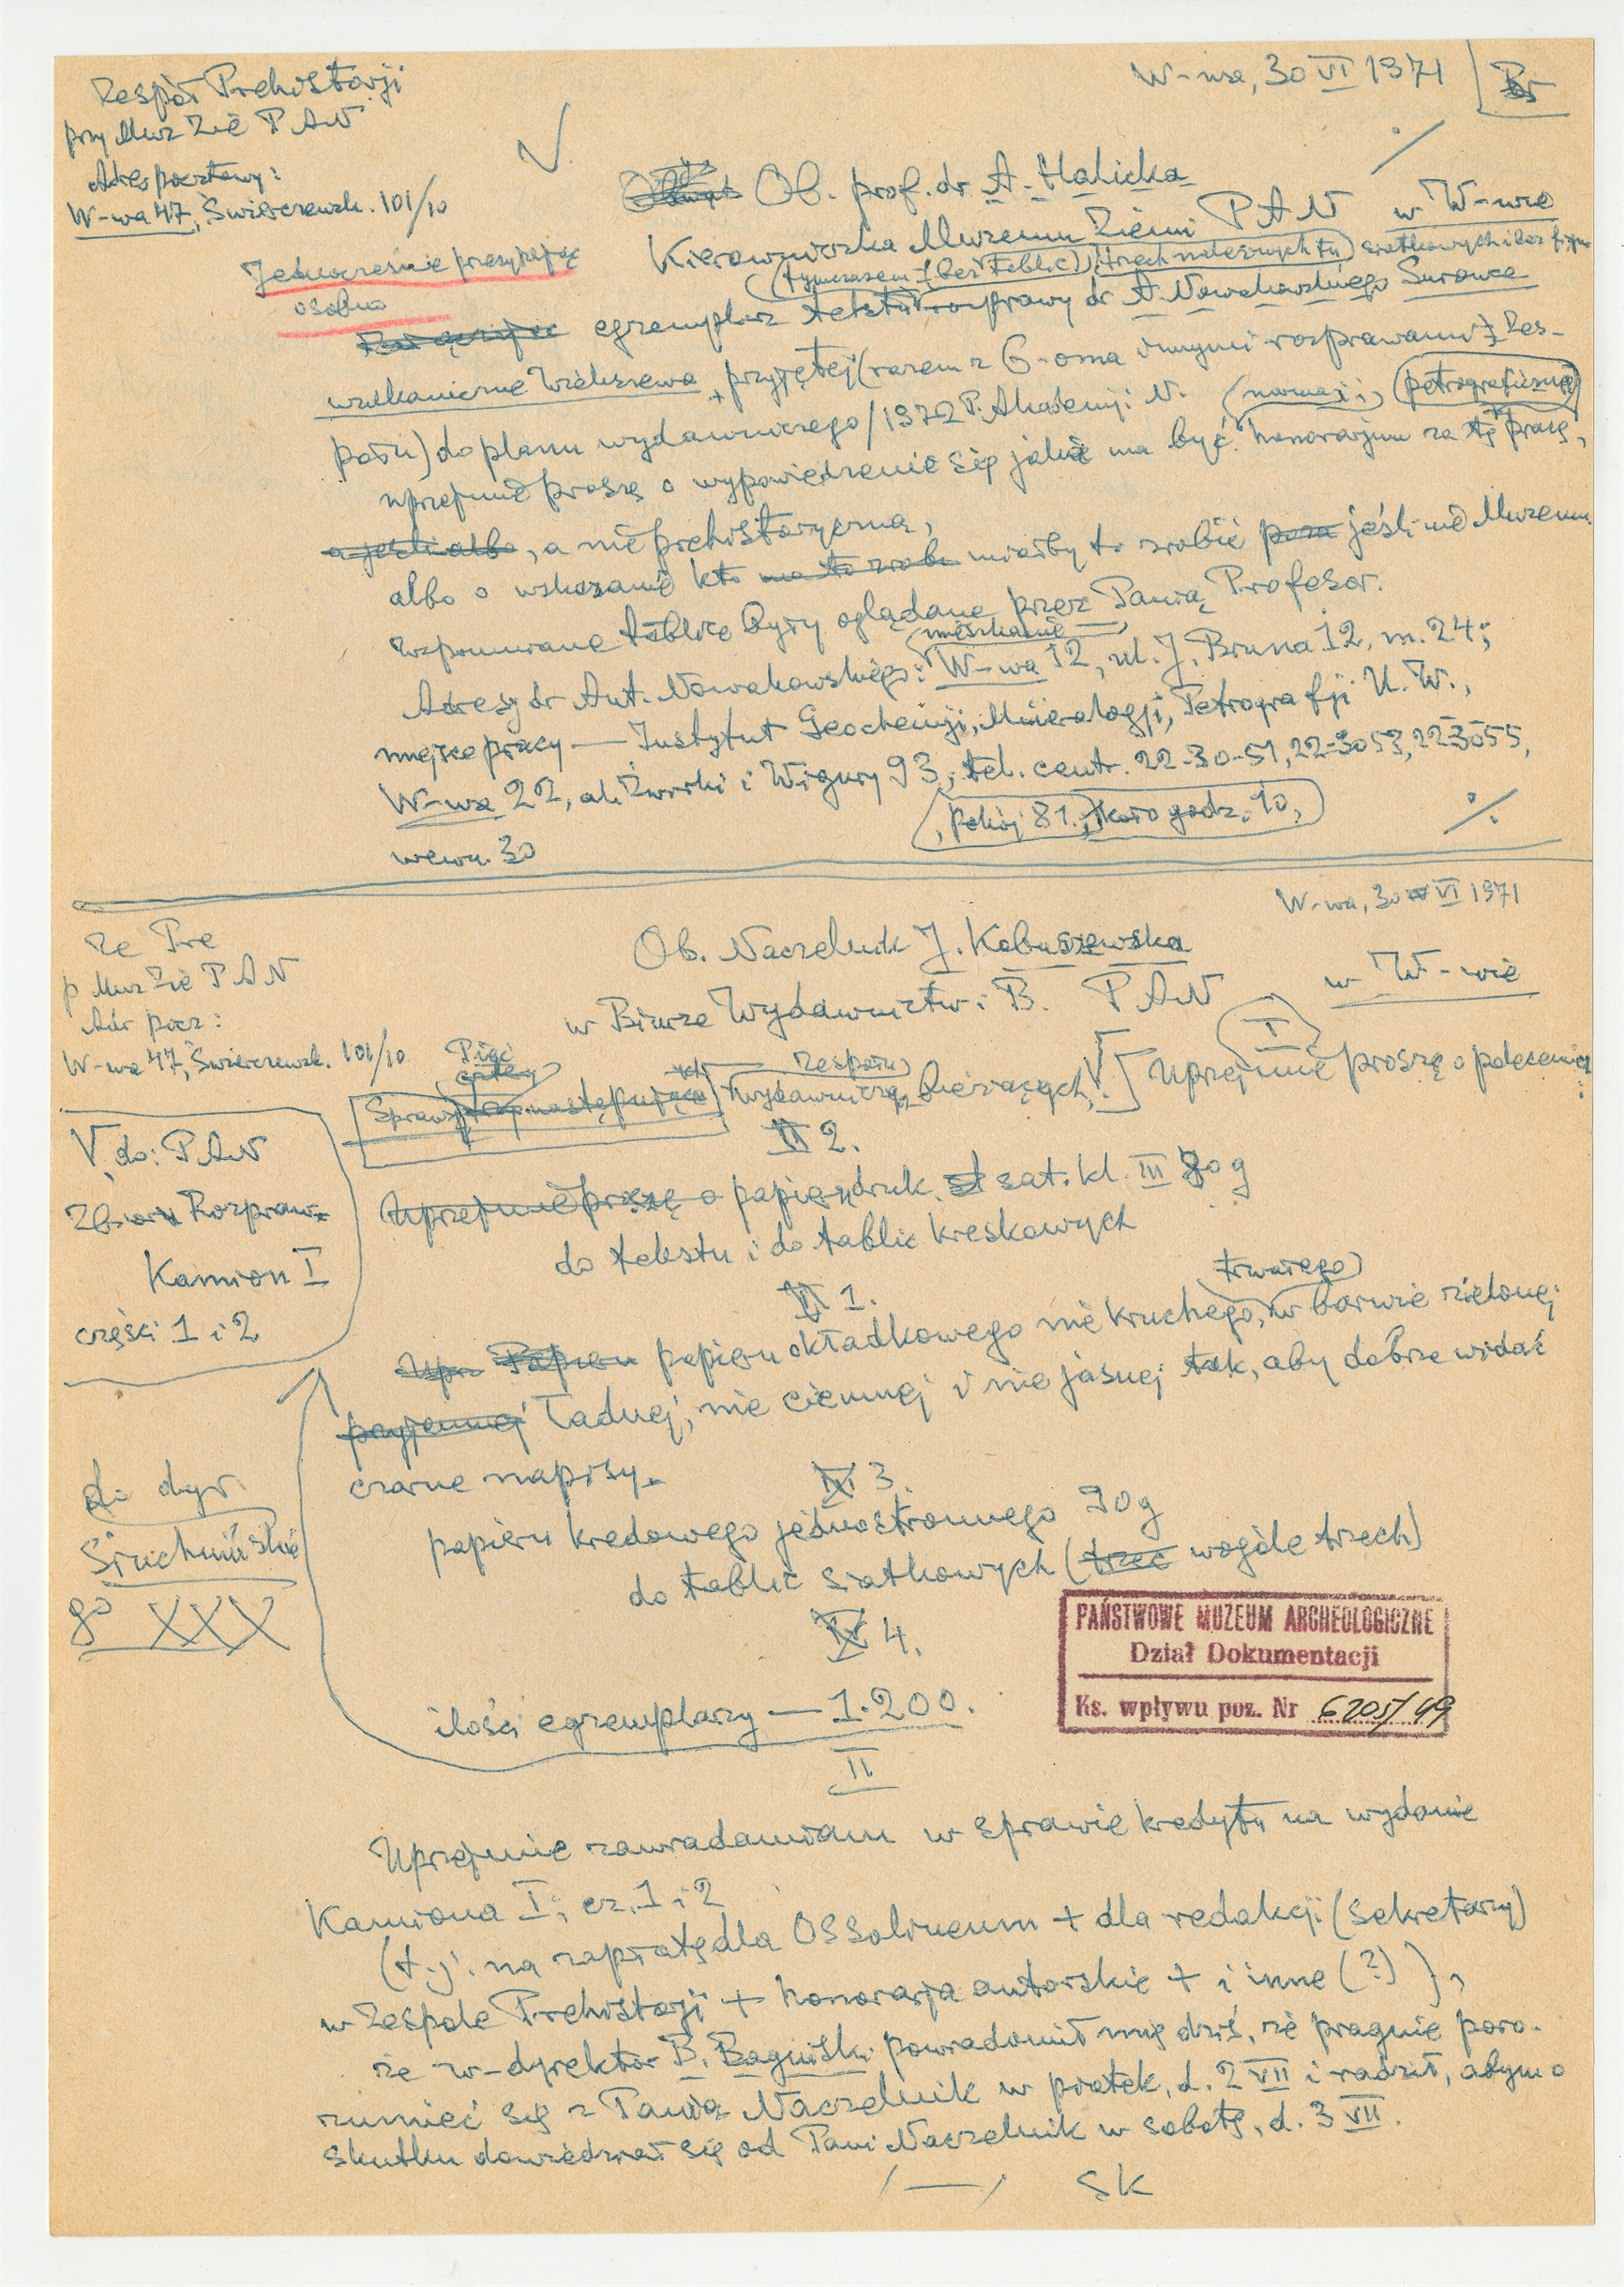 W-wa, 30 VI 1971
Zespół Prehistorji
przy Muz Zie P A N
Adres pocztowy:
W-wa 47, Świerczewsk. 101/10
Ob. prof. dr A. Halicka
Kierowniczka Muzeum Ziemi P A N w W-wie
Jednocześnie przesyłając
osobno
(tymczasem (bez tablic), trzech należnych tu) siatkowych i bez
egzemplarz tekstu rozprawy dr A. Nowakowskiego Surowce
wulkaniczne Wieliszewa, przyjętej (razem z 6-oma innymi rozprawami Zes-
połu) do planu wydawniczego / 1972 P. Akademji N. (petrograficzną)
uprzejmie proszę o wypowiedzenie się jakie ma być honorarjum za tę pracę,
a jeśli albo, a nie prehistoryczną,
albo o wskazanie kto ma to zrobi miałby to zrobić poza jeśli nie Muzeum.
Wspomniane tablice były oglądane przez Panią Profesor.
mieszkanie
Adresy dr Ant. Nowakowskiego: W-wa 12, ul. J. Bruna 12, m. 24;
miejsce pracy — Instytut Geochemji, Mineralogji, Petrografji U. W.,
W-wa 22, al. Żwirki i Wigury 93, tel. centr. 22-30-51, 22-3053, 223055,
wewn. 30
, pokój 81, koło godz. 10,
W-wa, 30 VI 1971
Ze Pre
p Muz Zie P A N
Adr pocz:
W-wa 47, Świerczewsk. 101/10
Ob. Naczelnik J. Kobuszewska
w Biurze Wydawnictw i B. P A N w W-wie
I
Pięć
Zespołu
Spraw następujące wydawniczych bieżących, Uprzejmie proszę o polecenia:
2.
Uprzejmie proszę o papieru druk. sat. kl. III 80 g
do tekstu i do tablic kreskowych
V do: P A N
Zbioru Rozpraw
Kamion I
części 1 i 2
1.
trwałego
Papieru papieru okładkowego nie kruchego, w barwie zielonej
przyjemnej ładnej, nie ciemnej i nie jasnej tak, aby dobrze widać
czarne napisy.
3.
papieru kredowego jednostronnego 90 g
do tablic siatkowych (trzec wogóle trzech)
do dyr.
Siuchnińskie
go XXX
4.
ilości egzemplarzy — 1.200.
PAŃSTWOWE MUZEUM ARCHEOLOGICZNE
Dział Dokumentacji
Ks. wpływu poz. Nr 6205/49
II
Uprzejmie zawiadamiam w sprawie kredytu na wydanie
Kamiona I, cz. 1 i 2
(t.j. na zapłatę dla Ossolineum + dla redakcji (sekretarzy)
w Zespole Prehistorji + honorarja autorskie + i inne (?) ),
że w-dyrektor B. Bagiński powiadomił mię dziś, że pragnie poro-
zumieć się z Panią Naczelnik w piątek, d. 2 VII i radził, abym o
skutku dowiedział się od Pani Naczelnik w sobotę, d. 3 VII.
/—/ SK